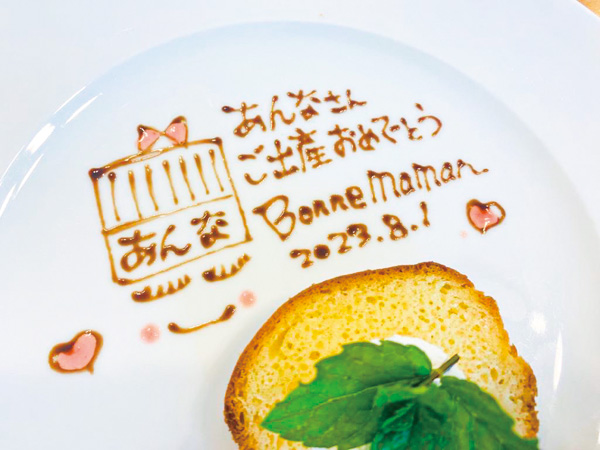 あんなさん
ご出産おめでとう
Bonne maman
2023.8.1
あんな